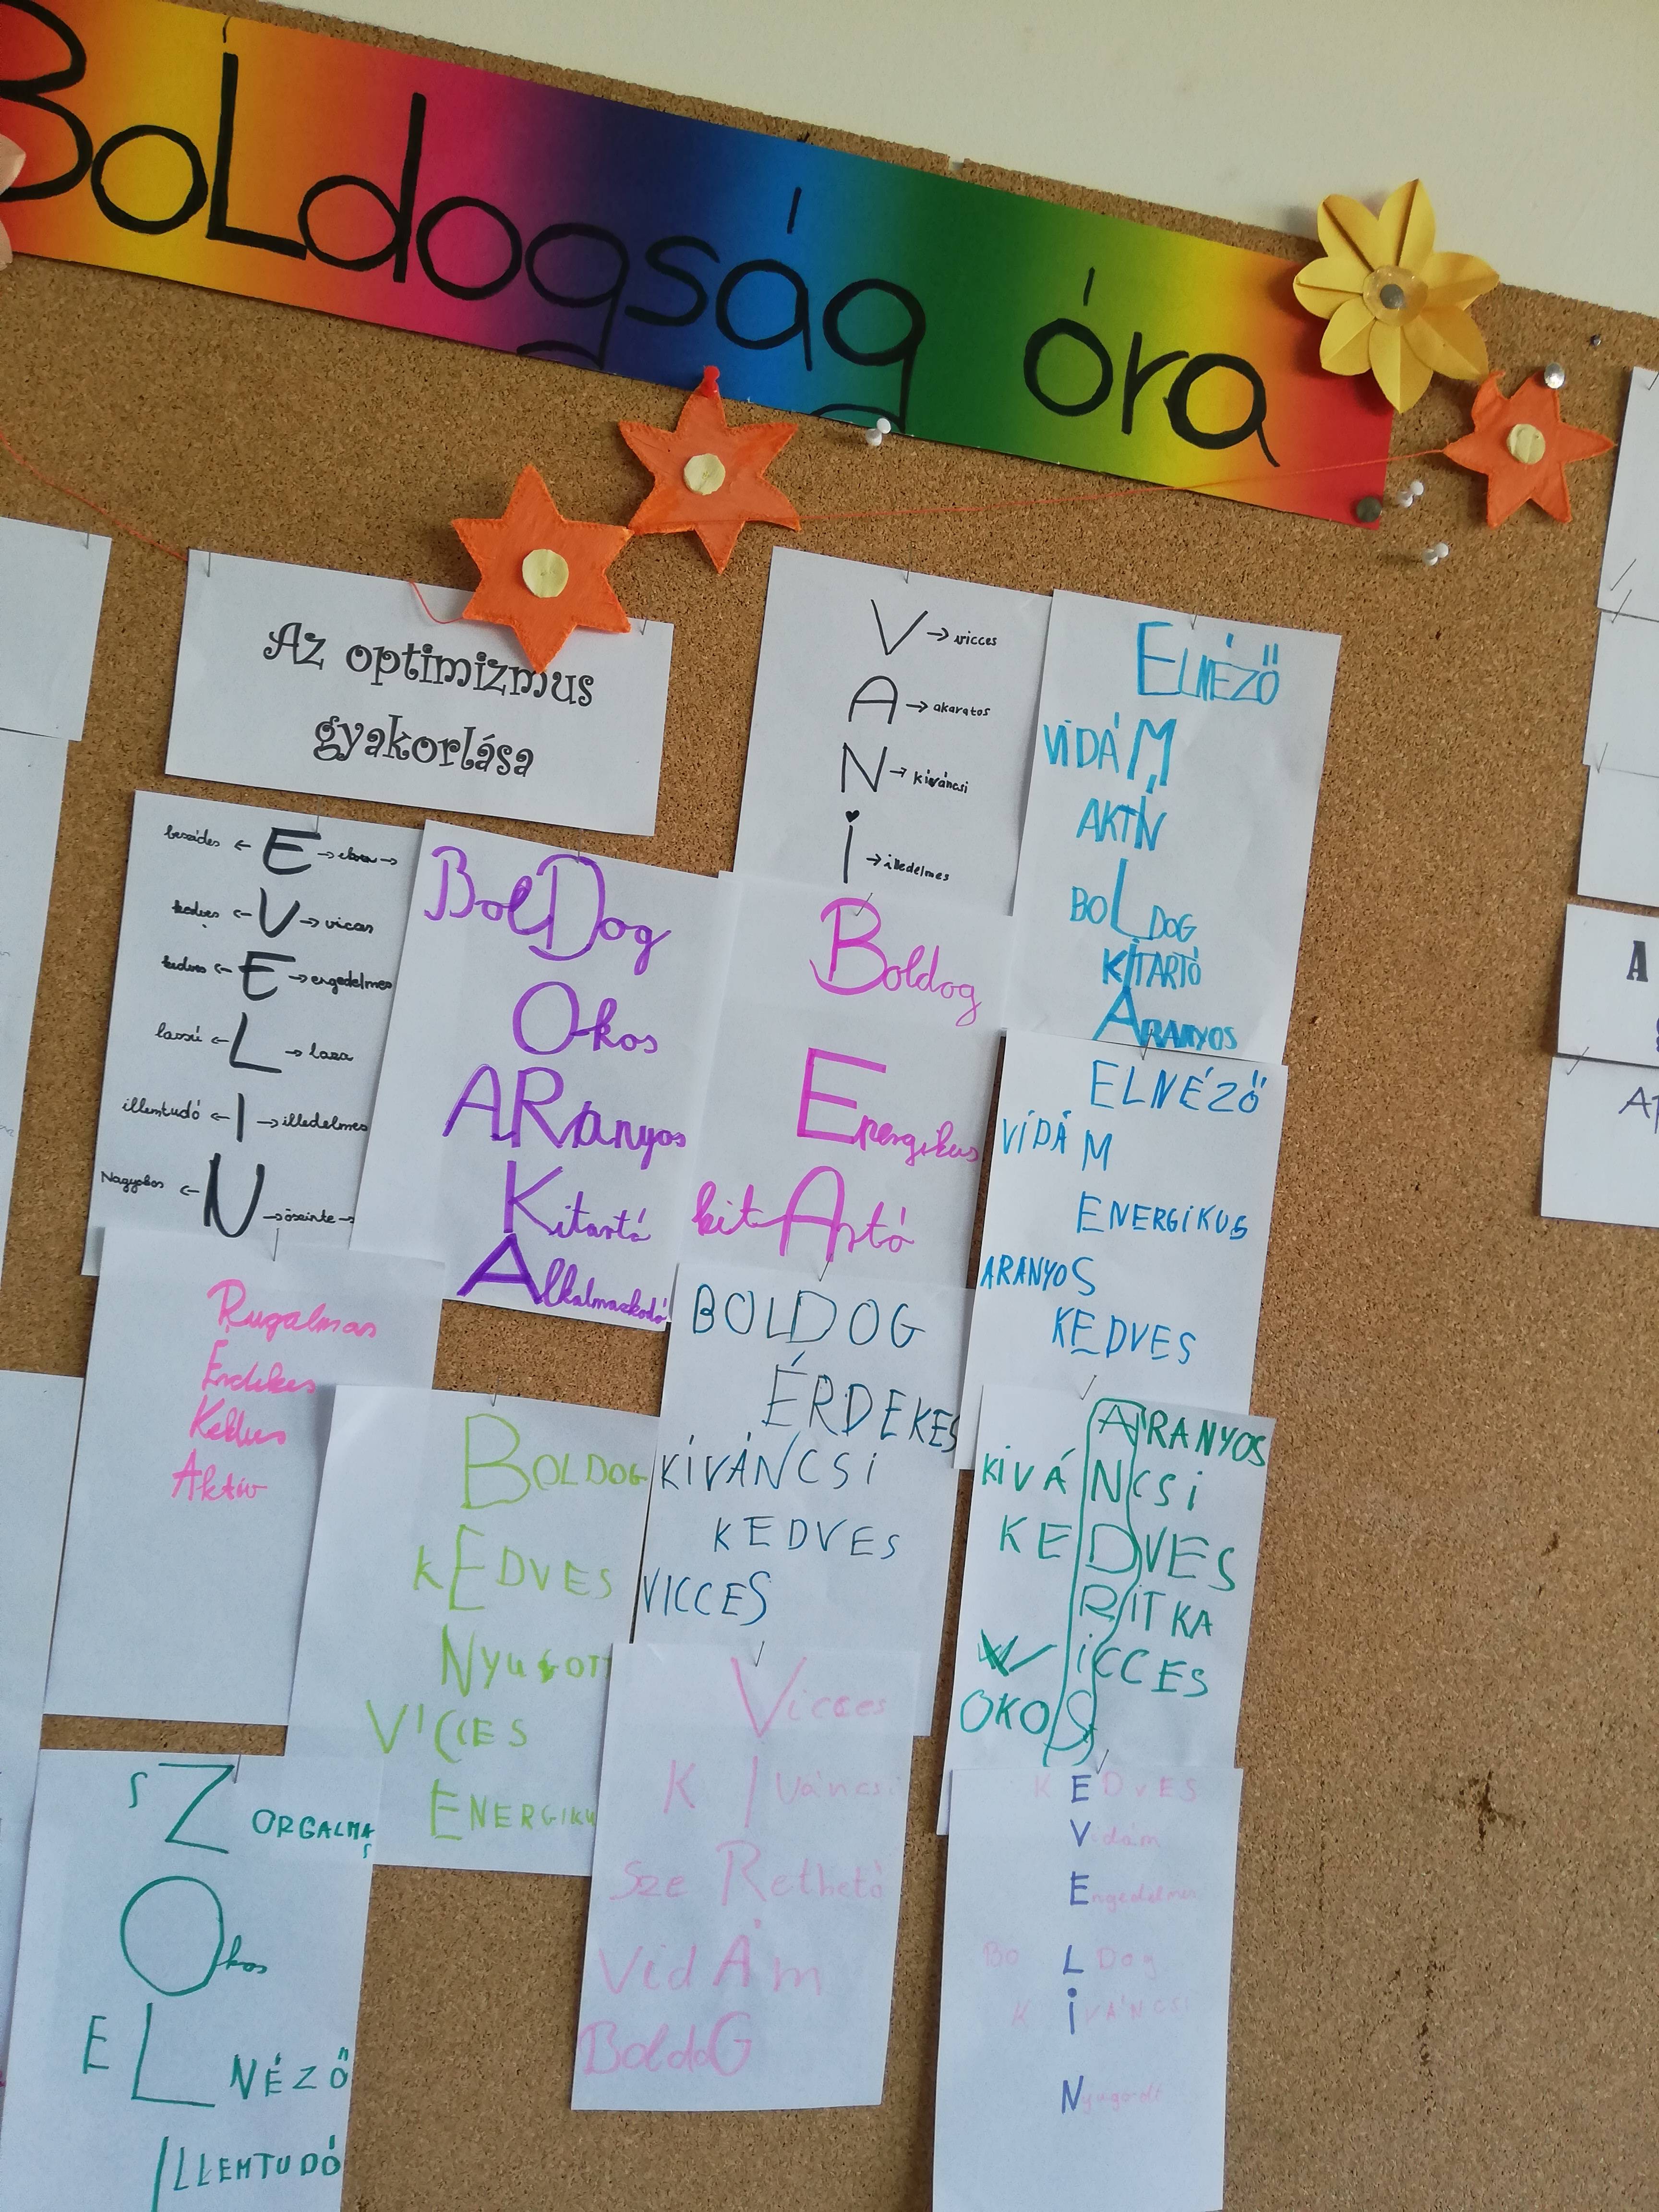 BoLdogság óra
Az optimizmus
gyakorlása
beszédes ← E →
kedves ← V → vicces
kedves ← E → engedelmes
lassú ← L → laza
illemtudó ← I → illedelmes
Nagyokos ← N → őszinte →
BolDog
Okos
ARanyos
Kitartó
Alkalmazkodó
V → vicces
A → akaratos
N → kíváncsi
i → illedelmes
ELNÉZŐ
ViDÁM
AKTÍV
BOLDOG
KITARTÓ
ARANYOS
Boldog
Energikus
kitArtó
ELNÉZŐ
VÍDÁM
ENERGiKUS
ARANYOS
KEDVES
Rugalmas
Érdekes
Kedves
Aktív
BOLDOG
KEDVES
NYUGOTT
VICCES
ENERGIKU
BOLDOG
ÉRDEKES
KÍVÁNCSi
KEDVES
VICCES
ARANYOS
KiVÁNCSi
KEDVES
RITKA
ViCCES
OKOS
SZORGALMAS
Okos
ELNÉZŐ
ILLEMTUDÓ
Vicces
KIVáncsi
SzeRethető
VidÁm
BoldoG
KEDvES
Vidám
Engedelmes
BoLDog
KiVÁNCSi
Nyugodt